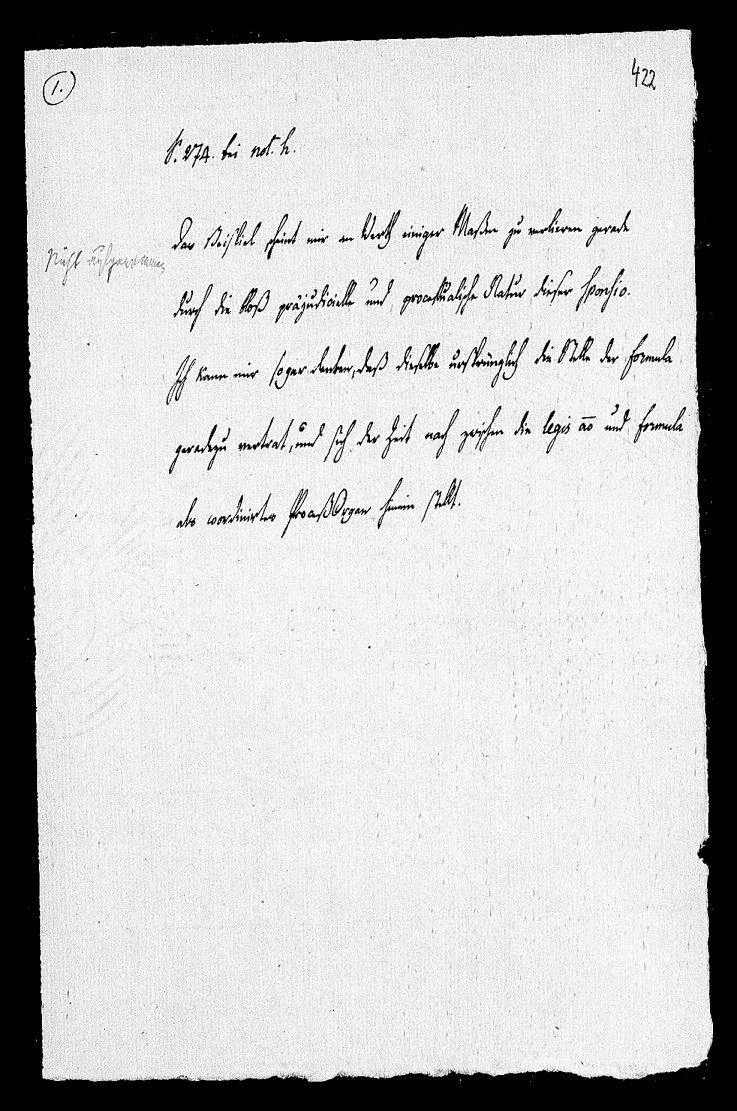 1.
422
S. 274. bei not. h.
Das Beispiel scheint mir an Werth einiger Maßen zu verlieren gerade
Nicht aufgenommen
durch die bloß präjudicielle und processualische Natur dieser sponsio.
Ich kann mir sogar denken, daß dieselbe ursprünglich die Stelle der formula
geradezu vertrat, und sich der Zeit nach zwischen die legis ao und formula
als coordinirtes ProceßOrgan hinein stellt.